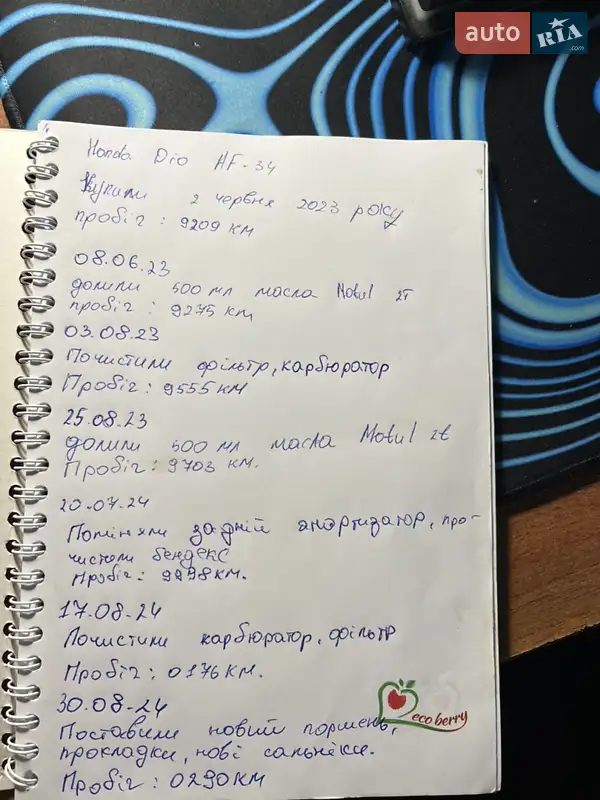 auto RIA .com
Honda Dio AF-34
Купили 2 червня 2023 року
пробіг : 9209 км
08.06.23
долили 500 мл масла Motul 2T
пробіг : 9275 км
03.08.23
Почистили фільтр, карбюратор
Пробіг: 9555 км
25.08.23
долили 500 мл масла Motul 2t
Пробіг: 9703 км.
20.07.24
Поміняли задній амортизатор, про-
чистили бендекс
Пробіг: 9998 км.
17.08.24
Почистили карбюратор, фільтр
Пробіг: 0176 км.
30.08.24
ecoberry
Поставили новий поршень,
прокладки, нові сальніки.
Пробіг: 0290 км